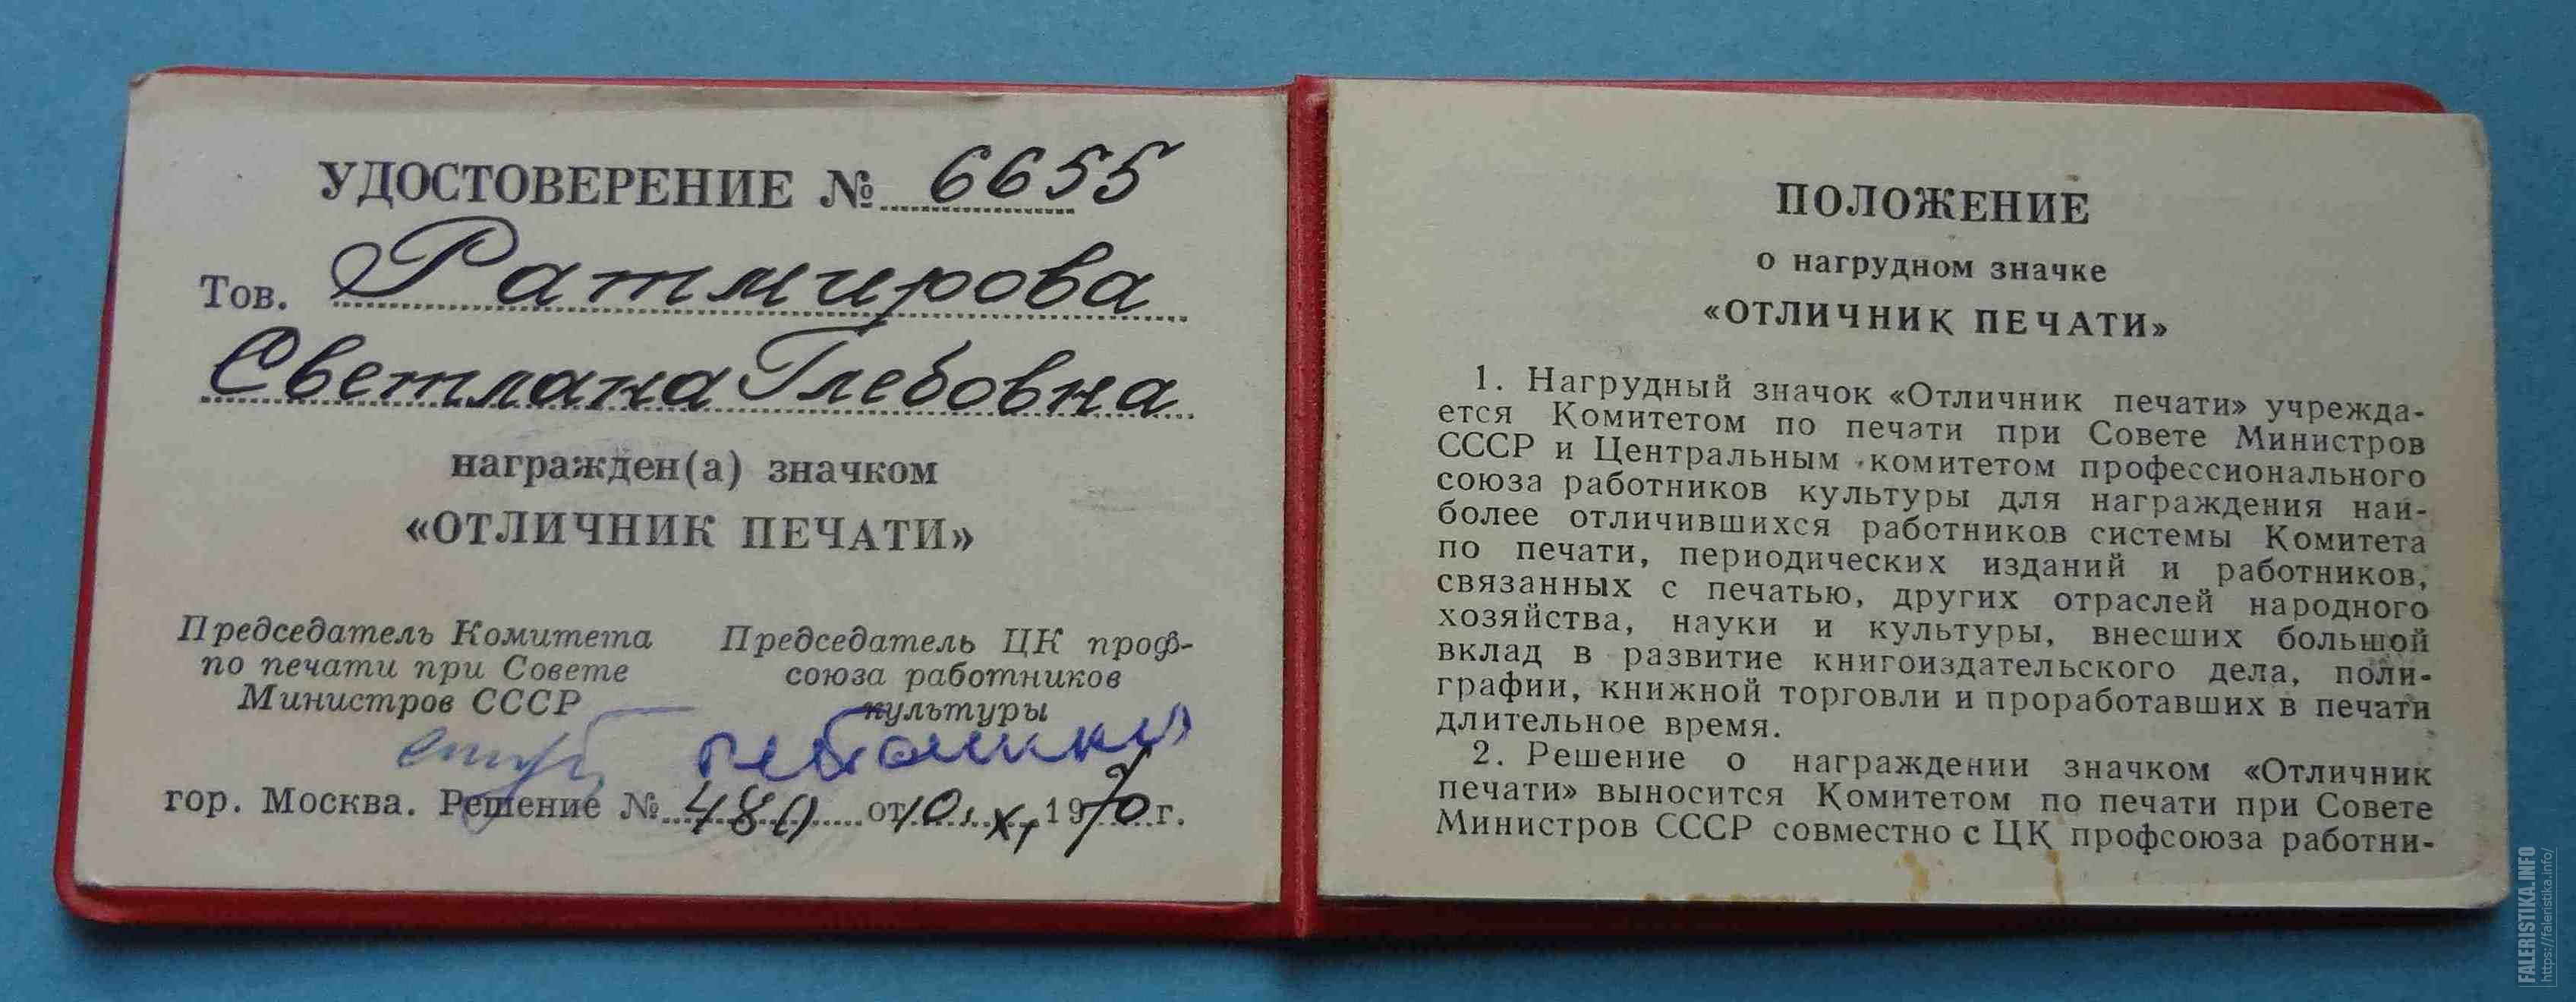 УДОСТОВЕРЕНИЕ № 6655
Тов. Ратмирова
Светлана Глебовна
награжден(а) значком
«ОТЛИЧНИК ПЕЧАТИ»
Председатель Комитета
по печати при Совете
Министров СССР
Председатель ЦК проф-
союза работников
культуры
гор. Москва. Решение № 480 от 10.X.1970 г.
ПОЛОЖЕНИЕ
о нагрудном значке
«ОТЛИЧНИК ПЕЧАТИ»
1. Нагрудный значок «Отличник печати» учрежда-
ется Комитетом по печати при Совете Министров
СССР и Центральным комитетом профессионального
союза работников культуры для награждения наи-
более отличившихся работников системы Комитета
по печати, периодических изданий и работников,
связанных с печатью, других отраслей народного
хозяйства, науки и культуры, внесших большой
вклад в развитие книгоиздательского дела, поли-
графии, книжной торговли и проработавших в печати
длительное время.
2. Решение о награждении значком «Отличник
печати» выносится Комитетом по печати при Совете
Министров СССР совместно с ЦК профсоюза работни-
FALERISTIKA.INFO
https://faleristika.info/